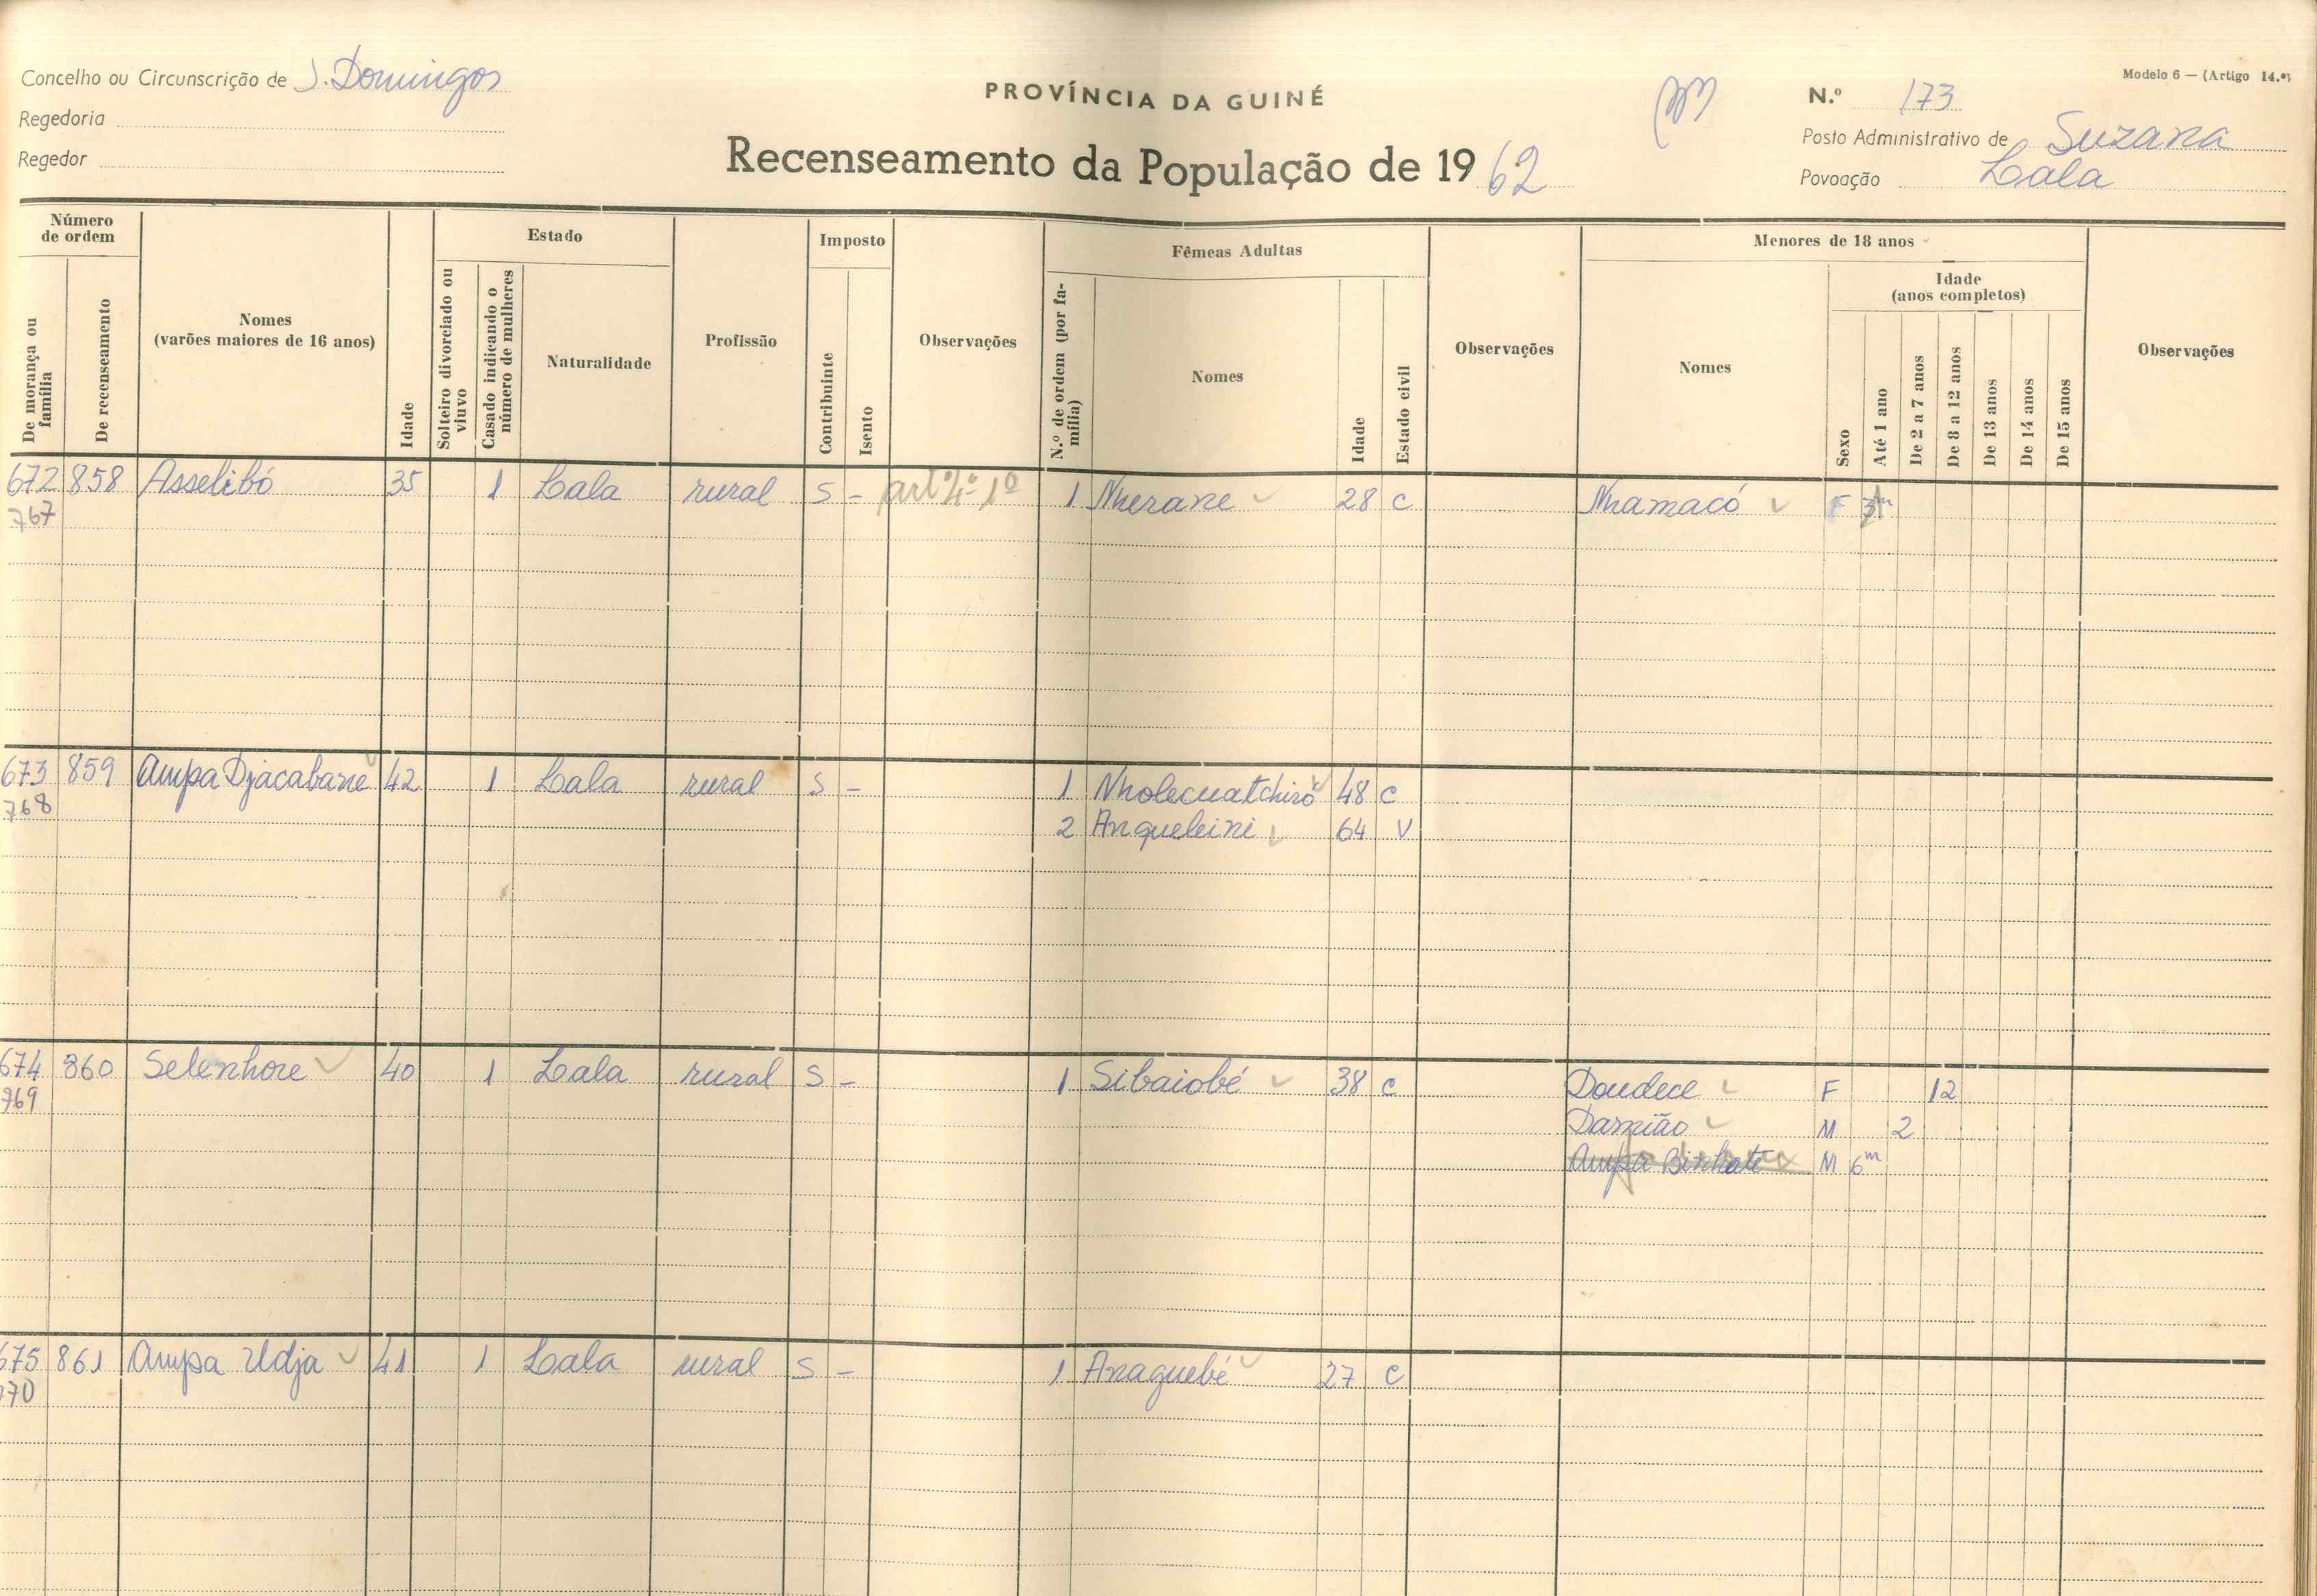 Concelho ou Circunscrição de S. Domingos
Regedoria
Regedor
PROVÍNCIA DA GUINÉ
Recenseamento da População de 1962
Modelo 6 — (Artigo 14.º)
N.º 173
Posto Administrativo de Suzana
Povoação Lala
Número de ordem
De morança ou família
De recenseamento
Nomes (varões maiores de 16 anos)
Idade
Estado
Solteiro divorciado ou viuvo
Casado indicando o número de mulheres
Naturalidade
Profissão
Imposto
Contribuinte
Isento
Observações
Fêmeas Adultas
N.º de ordem (por família)
Nomes
Idade
Estado civil
Observações
Menores de 18 anos
Nomes
Sexo
Idade (anos completos)
Até 1 ano
De 2 a 7 anos
De 8 a 12 anos
De 13 anos
De 14 anos
De 15 anos
Observações
672 858 Asselibó 35 1 Lala rural S - artº 4º 1º 1 Nherane 28 C Nhamacó F 3m
767
673 859 Ampa Djacabane 42 1 Lala rural S - 1 Nholecuatchiró 48 C
768 2 Anqueleini 64 V
674 860 Selenhore 40 1 Lala rural S - 1 Sibaiobé 38 C Doudece F 12
769 Damião M 2
Ampa Binhate M 6m
675 861 Ampa Udja 41 1 Lala rural S - 1 Anaguebé 27 C
770